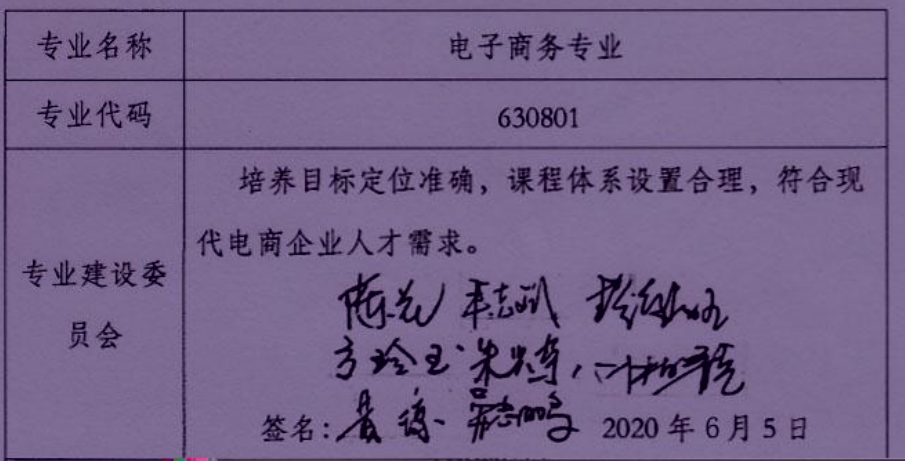 专业名称 电子商务专业
专业代码 630801
专业建设委员会
培养目标定位准确，课程体系设置合理，符合现
代电商企业人才需求。
方玲玉
签名： 2020年6月5日